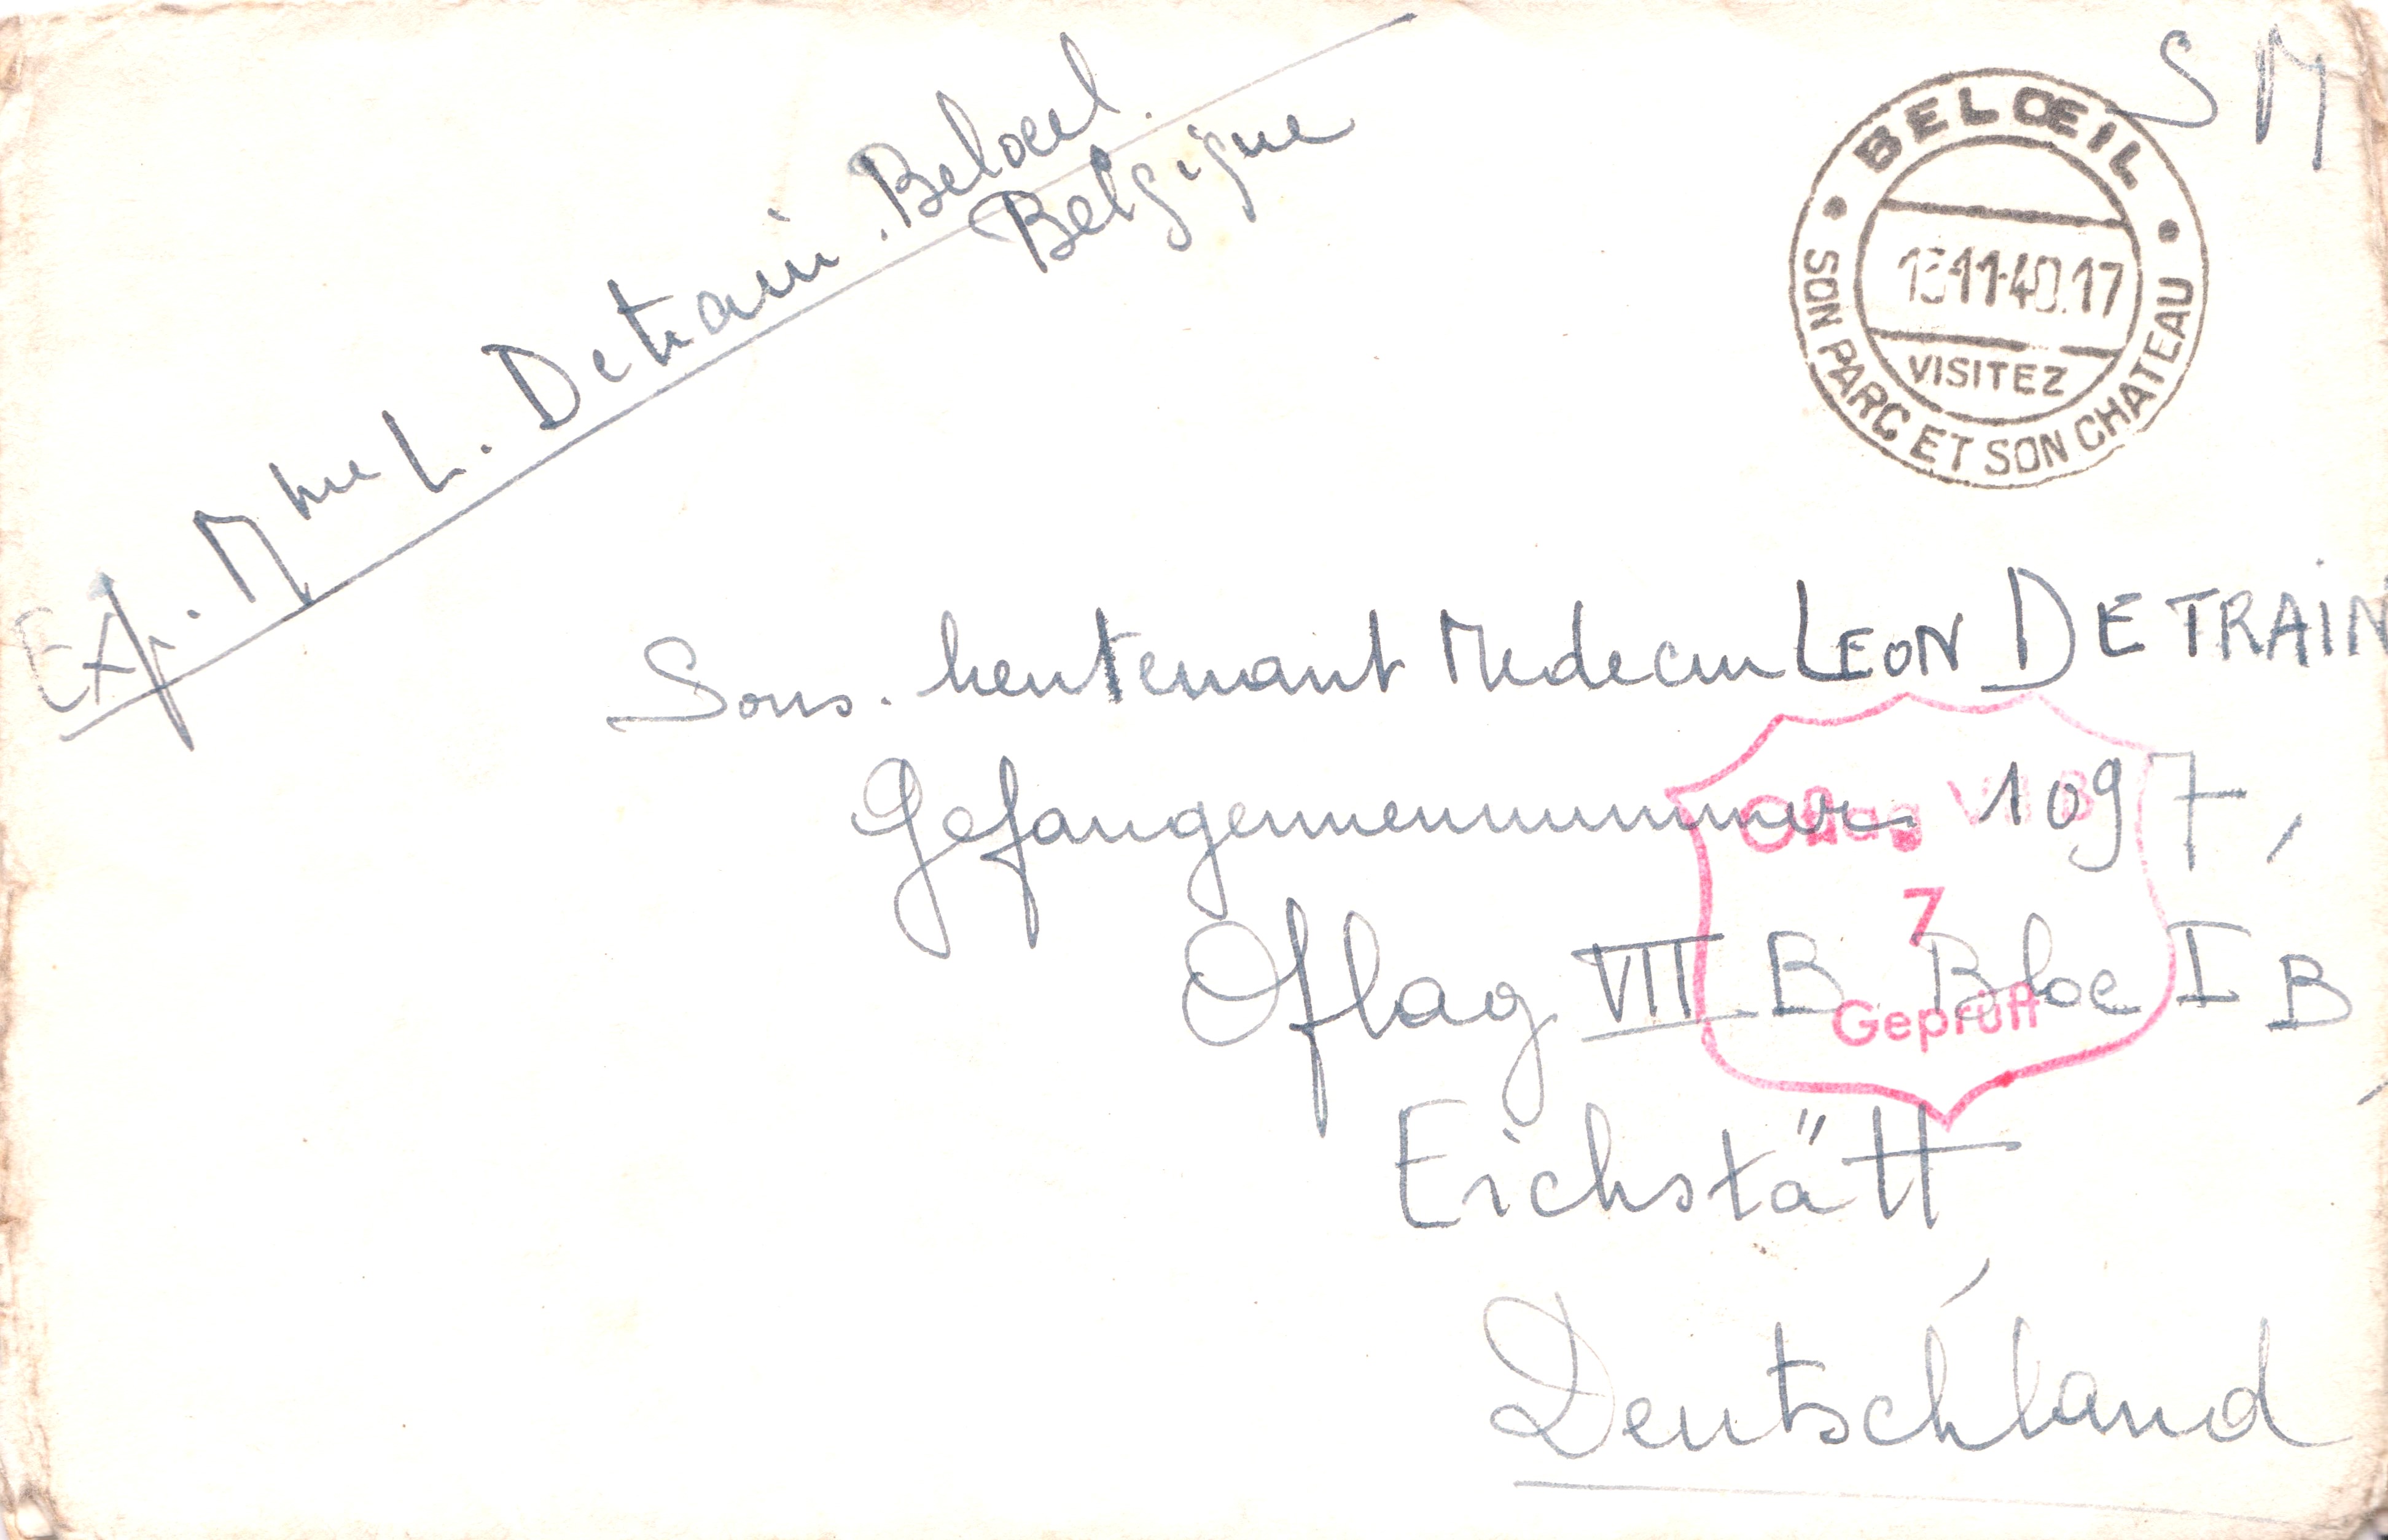 Exp. Mme L. Detrain. Beloeil.
Belgique
S M
BELŒIL
13-11-40.17
VISITEZ
SON PARC ET SON CHATEAU
Sous-lieutenant Medecin LEON DETRAIN
Gefangennennummer 1097,
Oflag VII B Bloc I B,
Eichstätt,
Deutschland
Oflag VII B
7
Geprüft